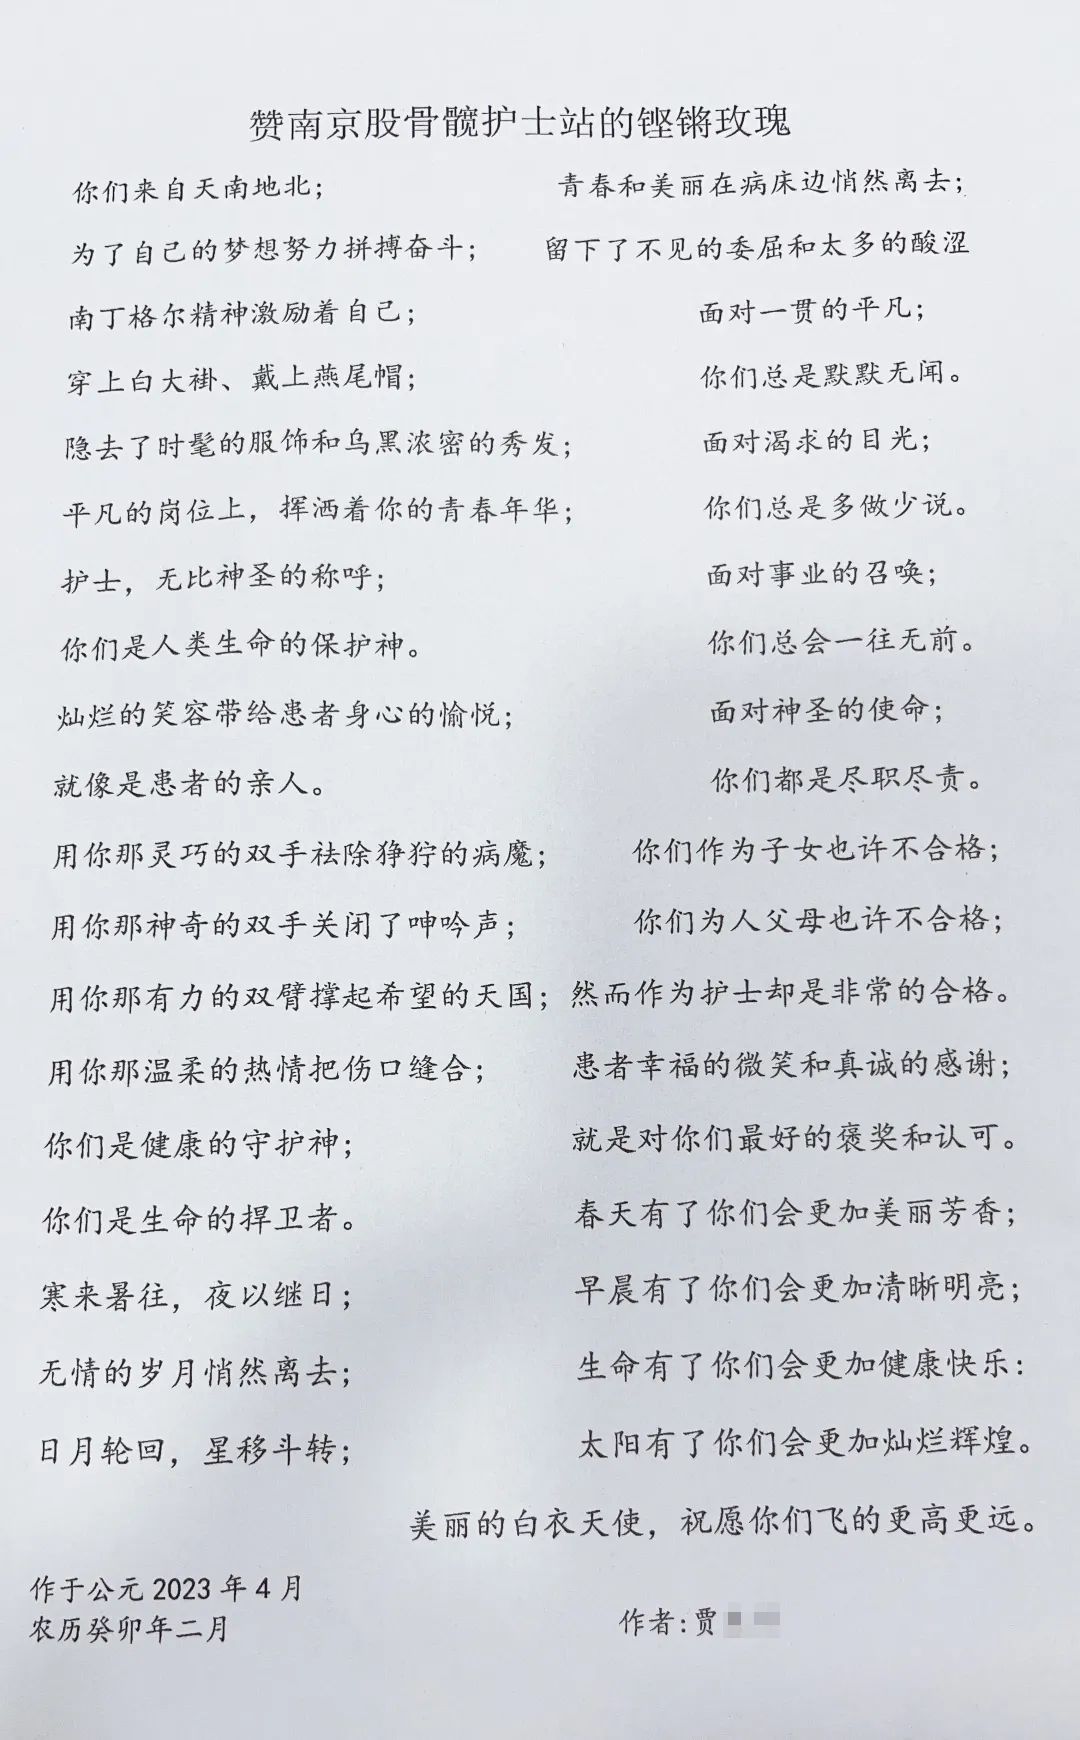 赞南京股骨髋护士站的铿锵玫瑰
你们来自天南地北；
为了自己的梦想努力拼搏奋斗；
南丁格尔精神激励着自己；
穿上白大褂、戴上燕尾帽；
隐去了时髦的服饰和乌黑浓密的秀发；
平凡的岗位上，挥洒着你的青春年华；
护士，无比神圣的称呼；
你们是人类生命的保护神。
灿烂的笑容带给患者身心的愉悦；
就像是患者的亲人。
用你那灵巧的双手祛除狰狞的病魔；
用你那神奇的双手关闭了呻吟声；
用你那有力的双臂撑起希望的天国；
用你那温柔的热情把伤口缝合；
你们是健康的守护神；
你们是生命的捍卫者。
寒来暑往，夜以继日；
无情的岁月悄然离去；
日月轮回，星移斗转；
青春和美丽在病床边悄然离去；
留下了不见的委屈和太多的酸涩
面对一贯的平凡；
你们总是默默无闻。
面对渴求的目光；
你们总是多做少说。
面对事业的召唤；
你们总会一往无前。
面对神圣的使命；
你们都是尽职尽责。
你们作为子女也许不合格；
你们为人父母也许不合格；
然而作为护士却是非常的合格。
患者幸福的微笑和真诚的感谢；
就是对你们最好的褒奖和认可。
春天有了你们会更加美丽芳香；
早晨有了你们会更加清晰明亮；
生命有了你们会更加健康快乐：
太阳有了你们会更加灿烂辉煌。
美丽的白衣天使，祝愿你们飞的更高更远。
作于公元 2023 年 4 月
农历癸卯年二月
作者:贾